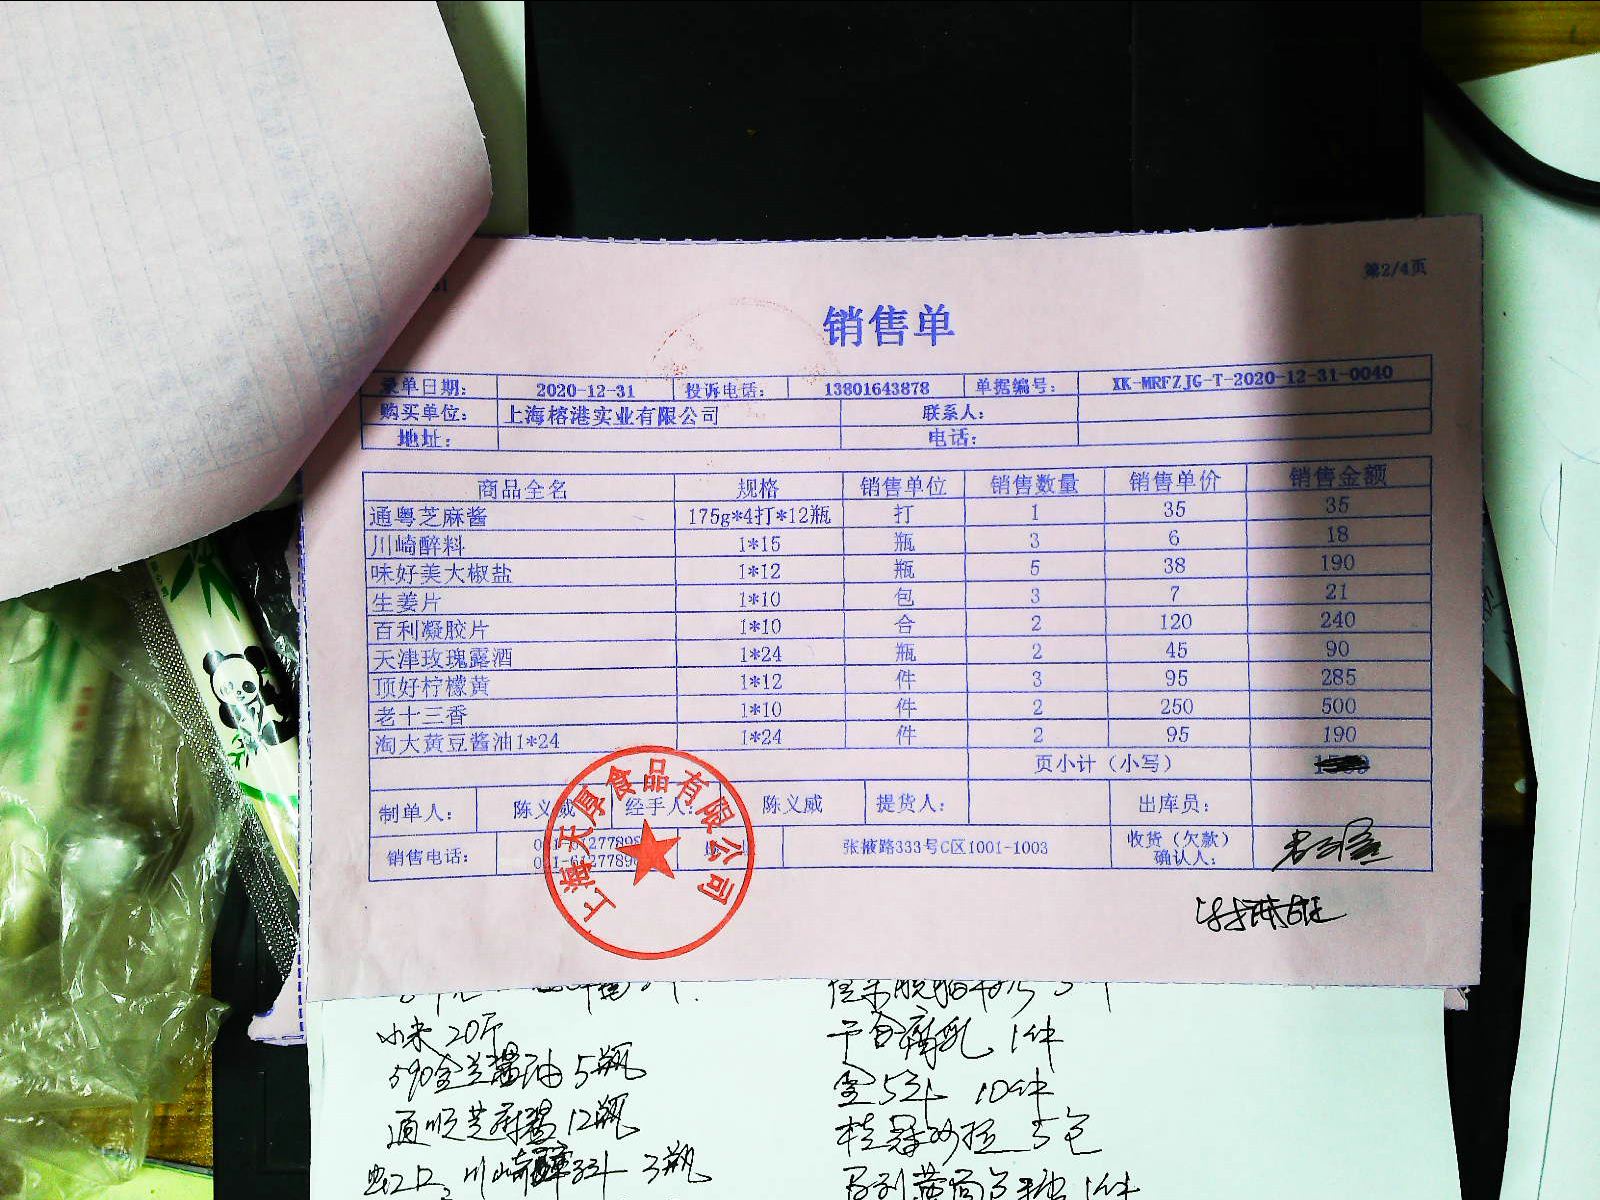 第2/4页
销售单
录单日期： 2020-12-31 投诉电话： 13801643878 单据编号： XK-MRFZJG-T-2020-12-31-0040
购买单位： 上海榕港实业有限公司 联系人：
地址： 电话：
商品全名 规格 销售单位 销售数量 销售单价 销售金额
通粤芝麻酱 175g*4打*12瓶 打 1 35 35
川崎醉料 1*15 瓶 3 6 18
味好美大椒盐 1*12 瓶 5 38 190
生姜片 1*10 包 3 7 21
百利凝胶片 1*10 合 2 120 240
天津玫瑰露酒 1*24 瓶 2 45 90
顶好柠檬黄 1*12 件 3 95 285
老十三香 1*10 件 2 250 500
淘大黄豆酱油1*24 1*24 件 2 95 190
页小计（小写）
制单人： 陈义威 经手人： 陈义威 提货人： 出库员：
销售电话： 张掖路333号C区1001-1003 收货（欠款）
确认人：
上海天厚食品有限公司
小米 20斤 干白腐乳 1件
590金兰酱油 5瓶 10件
12瓶 5包
川崎醉料 3瓶 1件